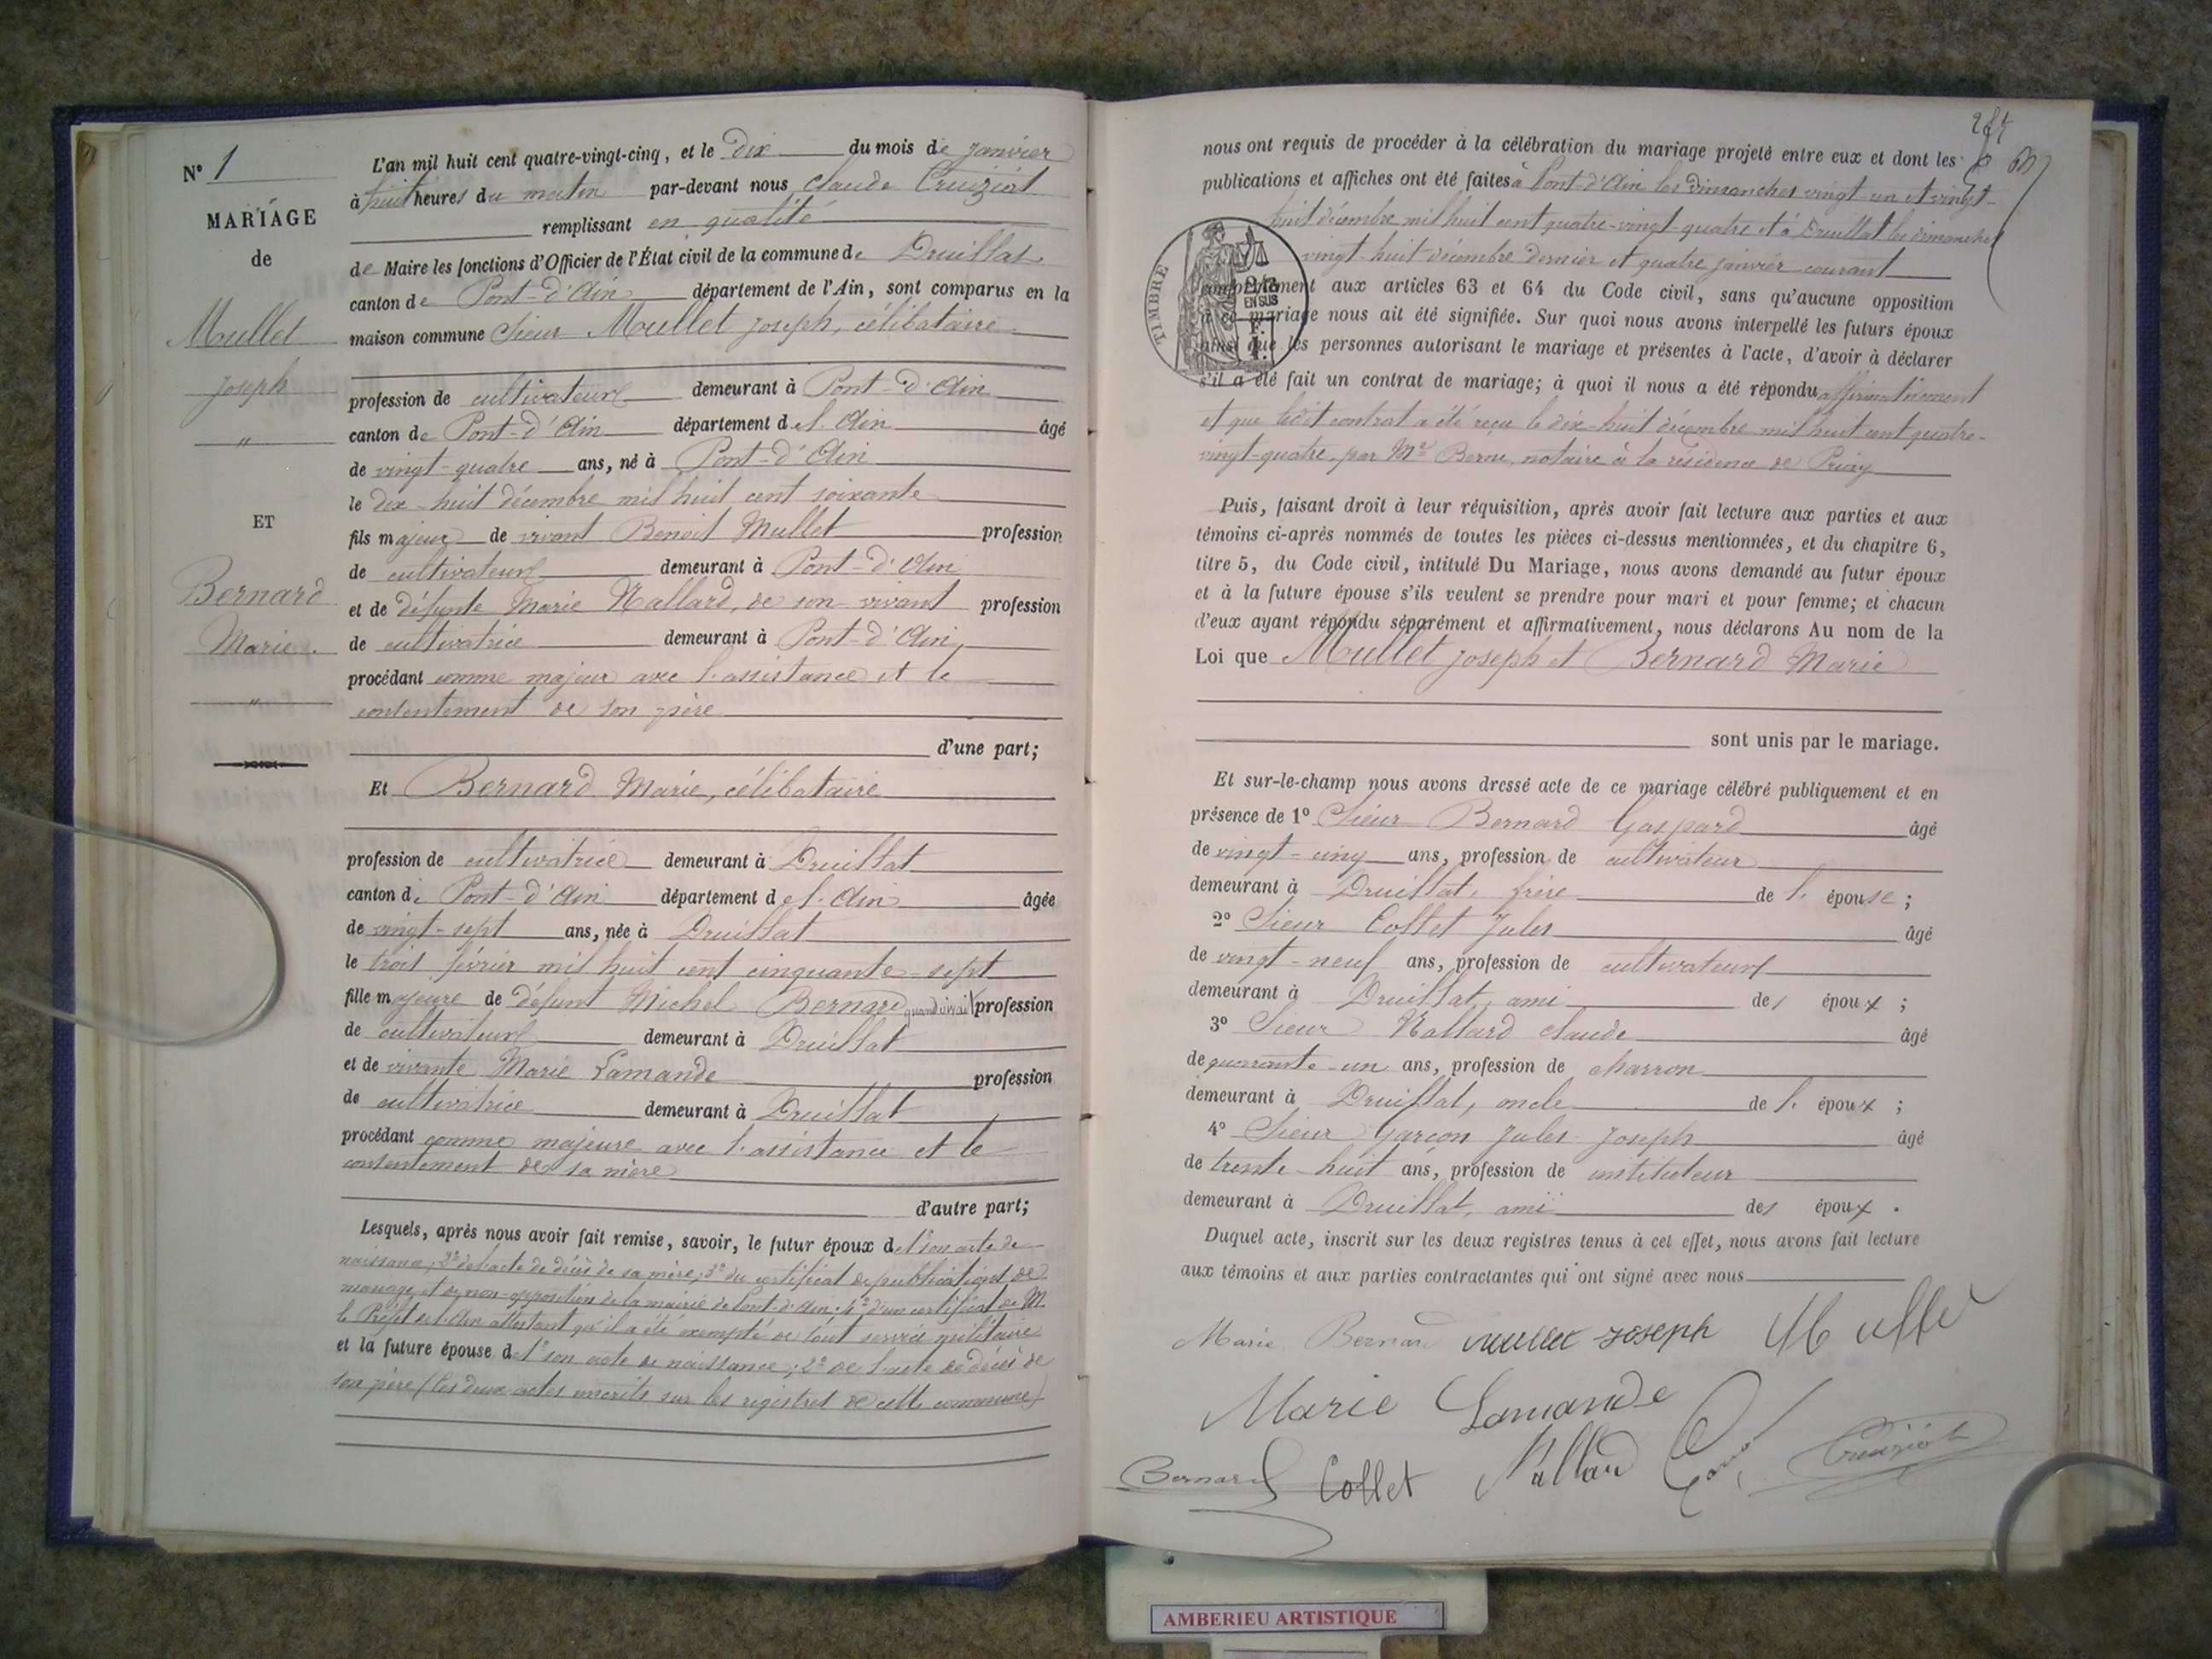 N° 1
MARIAGE
de
Mullet
Joseph
"
ET
Bernard
Marie.
"
L'an mil huit cent quatre-vingt-cinq, et le dix du mois de janvier
à huit heures du matin par-devant nous Claude Cruiziat
remplissant en qualité
de Maire les fonctions d'Officier de l'État civil de la commune de Druillat
canton de Pont-d'Ain département de l'Ain, sont comparus en la
maison commune Sieur Mullet Joseph, célibataire
profession de cultivateur demeurant à Pont-d'Ain
canton de Pont-d'Ain département de l'Ain âgé
de vingt-quatre ans, né à Pont-d'Ain
le dix-huit décembre mil huit cent soixante
fils majeur de vivant Benoit Mullet profession
de cultivateur demeurant à Pont-d'Ain
et de défunte Marie Nallard, de son vivant profession
de cultivatrice demeurant à Pont-d'Ain,
procédant comme majeur avec l'assistance et le
consentement de son père
d'une part;
Et Bernard Marie, célibataire
profession de cultivatrice demeurant à Druillat
canton de Pont-d'Ain département de l'Ain âgée
de vingt-sept ans, née à Druillat
le trois février mil huit cent cinquante-sept
fille majeure de défunt Michel Bernard quand vivait profession
de cultivateur demeurant à Druillat
et de vivante Marie Lamande profession
de cultivatrice demeurant à Druillat
procédant comme majeure avec l'assistance et le
consentement de sa mère
d'autre part;
Lesquels, après nous avoir fait remise, savoir, le futur époux de 1° son acte de
naissance; 2° de l'acte de décès de sa mère; 3° du certificat de publications de
mariage et de non-opposition de la mairie de Pont-d'Ain; 4° d'un certificat de M.
le Préfet de l'Ain attestant qu'il a été exempté de tout service militaire
et la future épouse de 1° son acte de naissance; 2° de l'acte de décès de
son père (les deux actes inscrits sur les registres de cette commune)
nous ont requis de procéder à la célébration du mariage projeté entre eux et dont les
publications et affiches ont été faites à Pont-d'Ain les dimanches vingt-un et vingt-
huit décembre mil huit cent quatre-vingt-quatre et à Druillat les dimanches
vingt-huit décembre dernier et quatre janvier courant
conformément aux articles 63 et 64 du Code civil, sans qu'aucune opposition
à ce mariage nous ait été signifiée. Sur quoi nous avons interpellé les futurs époux
ainsi que les personnes autorisant le mariage et présentes à l'acte, d'avoir à déclarer
s'il a été fait un contrat de mariage; à quoi il nous a été répondu affirmativement
et que ledit contrat a été reçu le dix-huit décembre mil huit cent quatre-
vingt-quatre, par Me Berne, notaire à la résidence de Priay
TIMBRE
EN SUS
Puis, faisant droit à leur réquisition, après avoir fait lecture aux parties et aux
témoins ci-après nommés de toutes les pièces ci-dessus mentionnées, et du chapitre 6,
titre 5, du Code civil, intitulé Du Mariage, nous avons demandé au futur époux
et à la future épouse s'ils veulent se prendre pour mari et pour femme; et chacun
d'eux ayant répondu séparément et affirmativement, nous déclarons Au nom de la
Loi que Mullet Joseph et Bernard Marie
sont unis par le mariage.
Et sur-le-champ nous avons dressé acte de ce mariage célébré publiquement et en
présence de 1° Sieur Bernard Gaspard âgé
de vingt-cinq ans, profession de cultivateur
demeurant à Druillat, frère de l'épouse;
2° Sieur Collet Jules âgé
de vingt-neuf ans, profession de cultivateur
demeurant à Druillat, ami des époux;
3° Sieur Nallard Claude âgé
de quarante-un ans, profession de charron
demeurant à Druillat, oncle de l'époux;
4° Sieur Garçon Jules Joseph âgé
de trente-huit ans, profession de instituteur
demeurant à Druillat, ami des époux.
Duquel acte, inscrit sur les deux registres tenus à cet effet, nous avons fait lecture
aux témoins et aux parties contractantes qui ont signé avec nous
Marie Bernard Mullet Joseph Mullet
Marie Lamande
Bernard Collet Nallard Cruiziat
AMBERIEU ARTISTIQUE